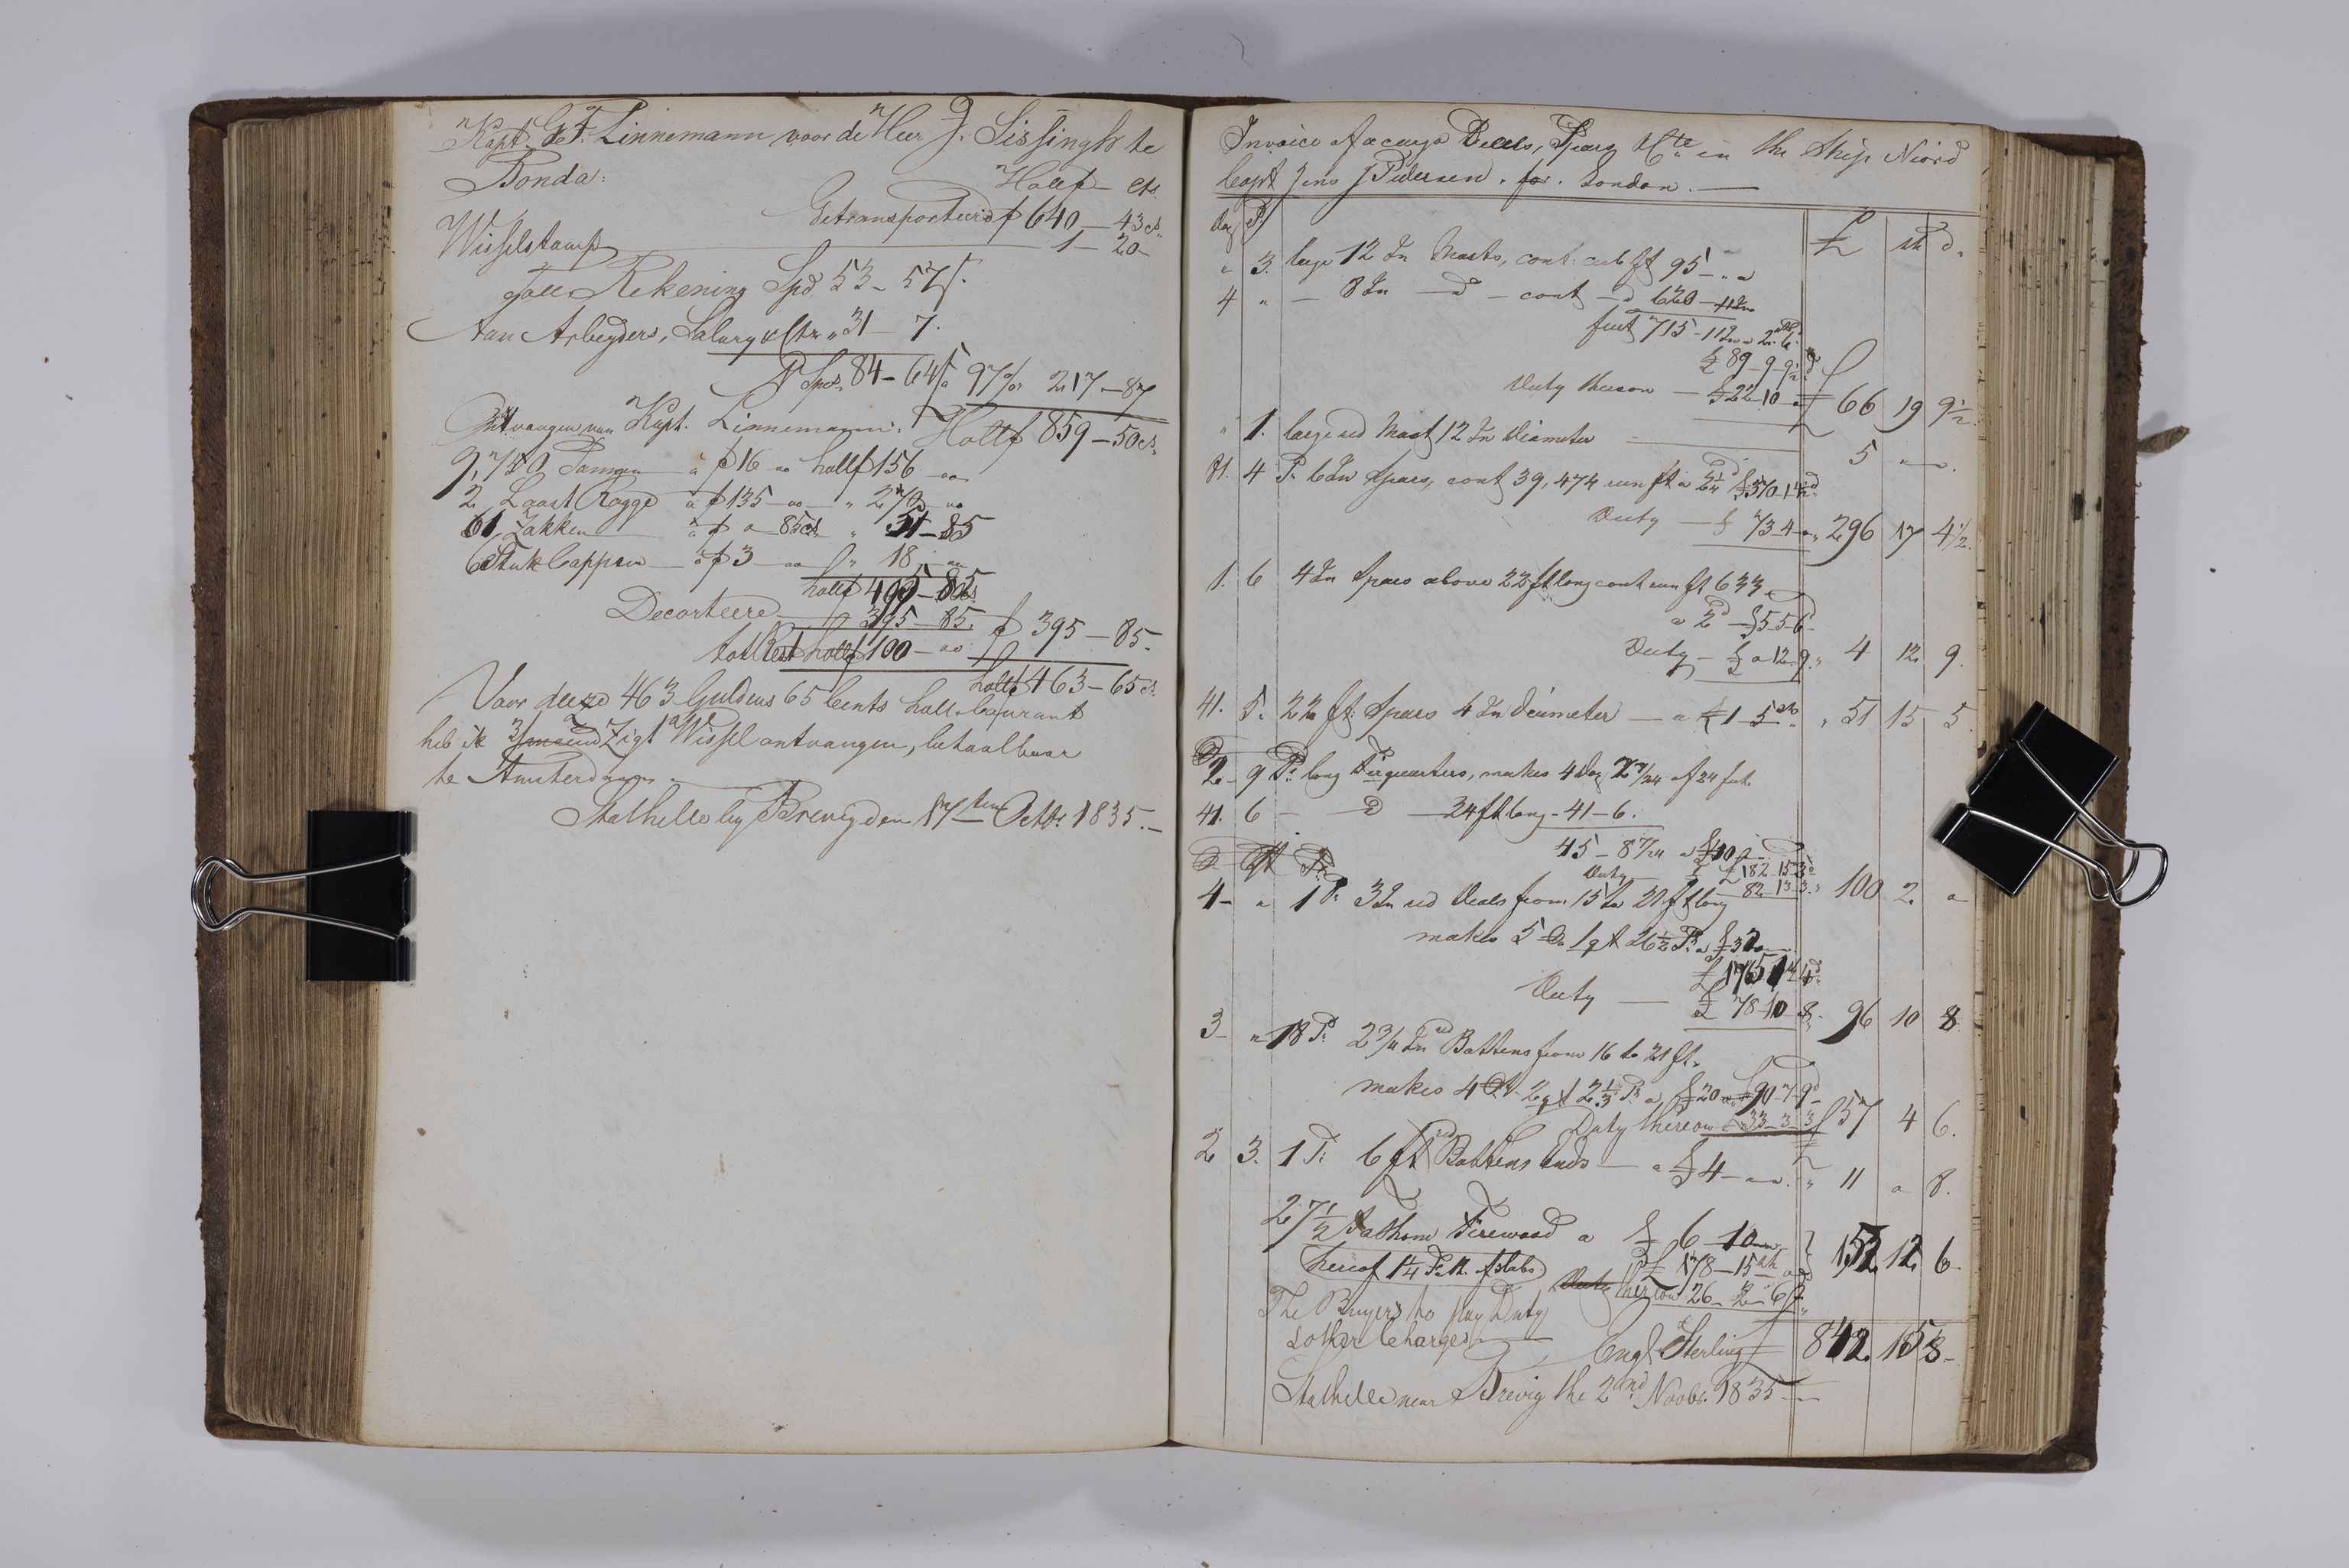 Kapt. G. F. Linnemann voor de Heer J. Sissingh te
Bonda:
Hollf — cts.
Getransporteerd f 640 — 43 cts.
Wisselstamp — 1 — 20 —
Toll Rekening Spd. 53 — 57
Aan Arbeyders, Salary & Ctr " 31 — 7.
Spd. 84 — 64 a 97 % 217 — 87
Ontvangen van Kapt. Linnemann: Hollf 859 — 50 cts.
a f 16 " hollf 156 —
2 Laast Rogge a f 135 — " 270 —
61 Zakken a f " 85 cts. " 51 — 85
6 Stuk Cappen — a f 3 — " 18 —
hollf 495 — 85
Decorteere 395 — 85. f 395 — 85.
Rest hollf 100 —
hollf 463 — 65 cts.
Voor deeze 463 Guldens 65 Cents holl. Courant
heb ik 3/maand Zigt Wissel ontvangen, betaalbaar
te Amsterdam. —
Stathelle by Brevig den 17ten Octbr. 1835. —
Invoice of a cargo Deals, Spars &cte. in the Ship Niord
Capt Jens J Pedersen. for. London. —
£ sh d.
" 3. large 12 In Masts, cont. cub ft 95 — " "
4 " — 8 In — d — cont — d 620 — 11 In
feet 715 — 11 In a 2 sh 6.
£ 89 — 9 — 9 ½
Duty thereon — £ 22 — 10 — " £ 66 19 9 ½
" 1. large red Mast 12 In Diameter — 5 " — ".
81. 4 P. 6 In Spars, cont 39,474 run ft a 2 ¼ d £ 370 — 1 — 4 ½ d
Duty — £ 73 — 4 — " " 296 17 4 ½.
1. 6 4 In Spars above 22 ft long cont run ft 633
a 2 d — £ 5 — 5 — 6
Duty — £ " 12 — 9. " 4 12. 9.
41. 5. 22 ft. Spars 4 In diameter — a £ 1 — 5 sh " 51 15 5
2 — 9 P. long Firquarters, makes 4 Doz 2 7/24 of 24 feet.
41. 6 — D — 24 ft long — 41 — 6.
45 — 8 7/24
Duty £ 182 — 15 — 3
82 — 13 — 3. " 100 2. "
4 — " 1 P. 3 In red Deals from 15 to 21 ft long
makes 5 C. 1 qt 26 ½ P. a £
Duty — £ 78 — 10 — 8. 96 10 8
3 — " 18 P. 2 ¾ In red Battens from 16 to 21 ft.
makes 4 C. 2 qt 2 ⅓ P. a £ 20 — " £ 90 — 7 — 9 d
Duty thereon £ 33 — 3 — 3 £ 57 4 6.
2 3. 1 P. 6 ft red Battens Ends — a £ 4 — " — ". " 11 " 8.
27 ½ Fathom Firewood a £ 6 — 10 —
hereof 1 ¼ Fath. of slabs £ 178 — 15 sh — " 152 12 6
Duty thereon 26 — 2 — 6
The Buyers to pay Duty
& other Charges — Engl. Sterling £ 842. 15 8 —
Stathelle near Brevig the 2nd Novbr. 1835 —